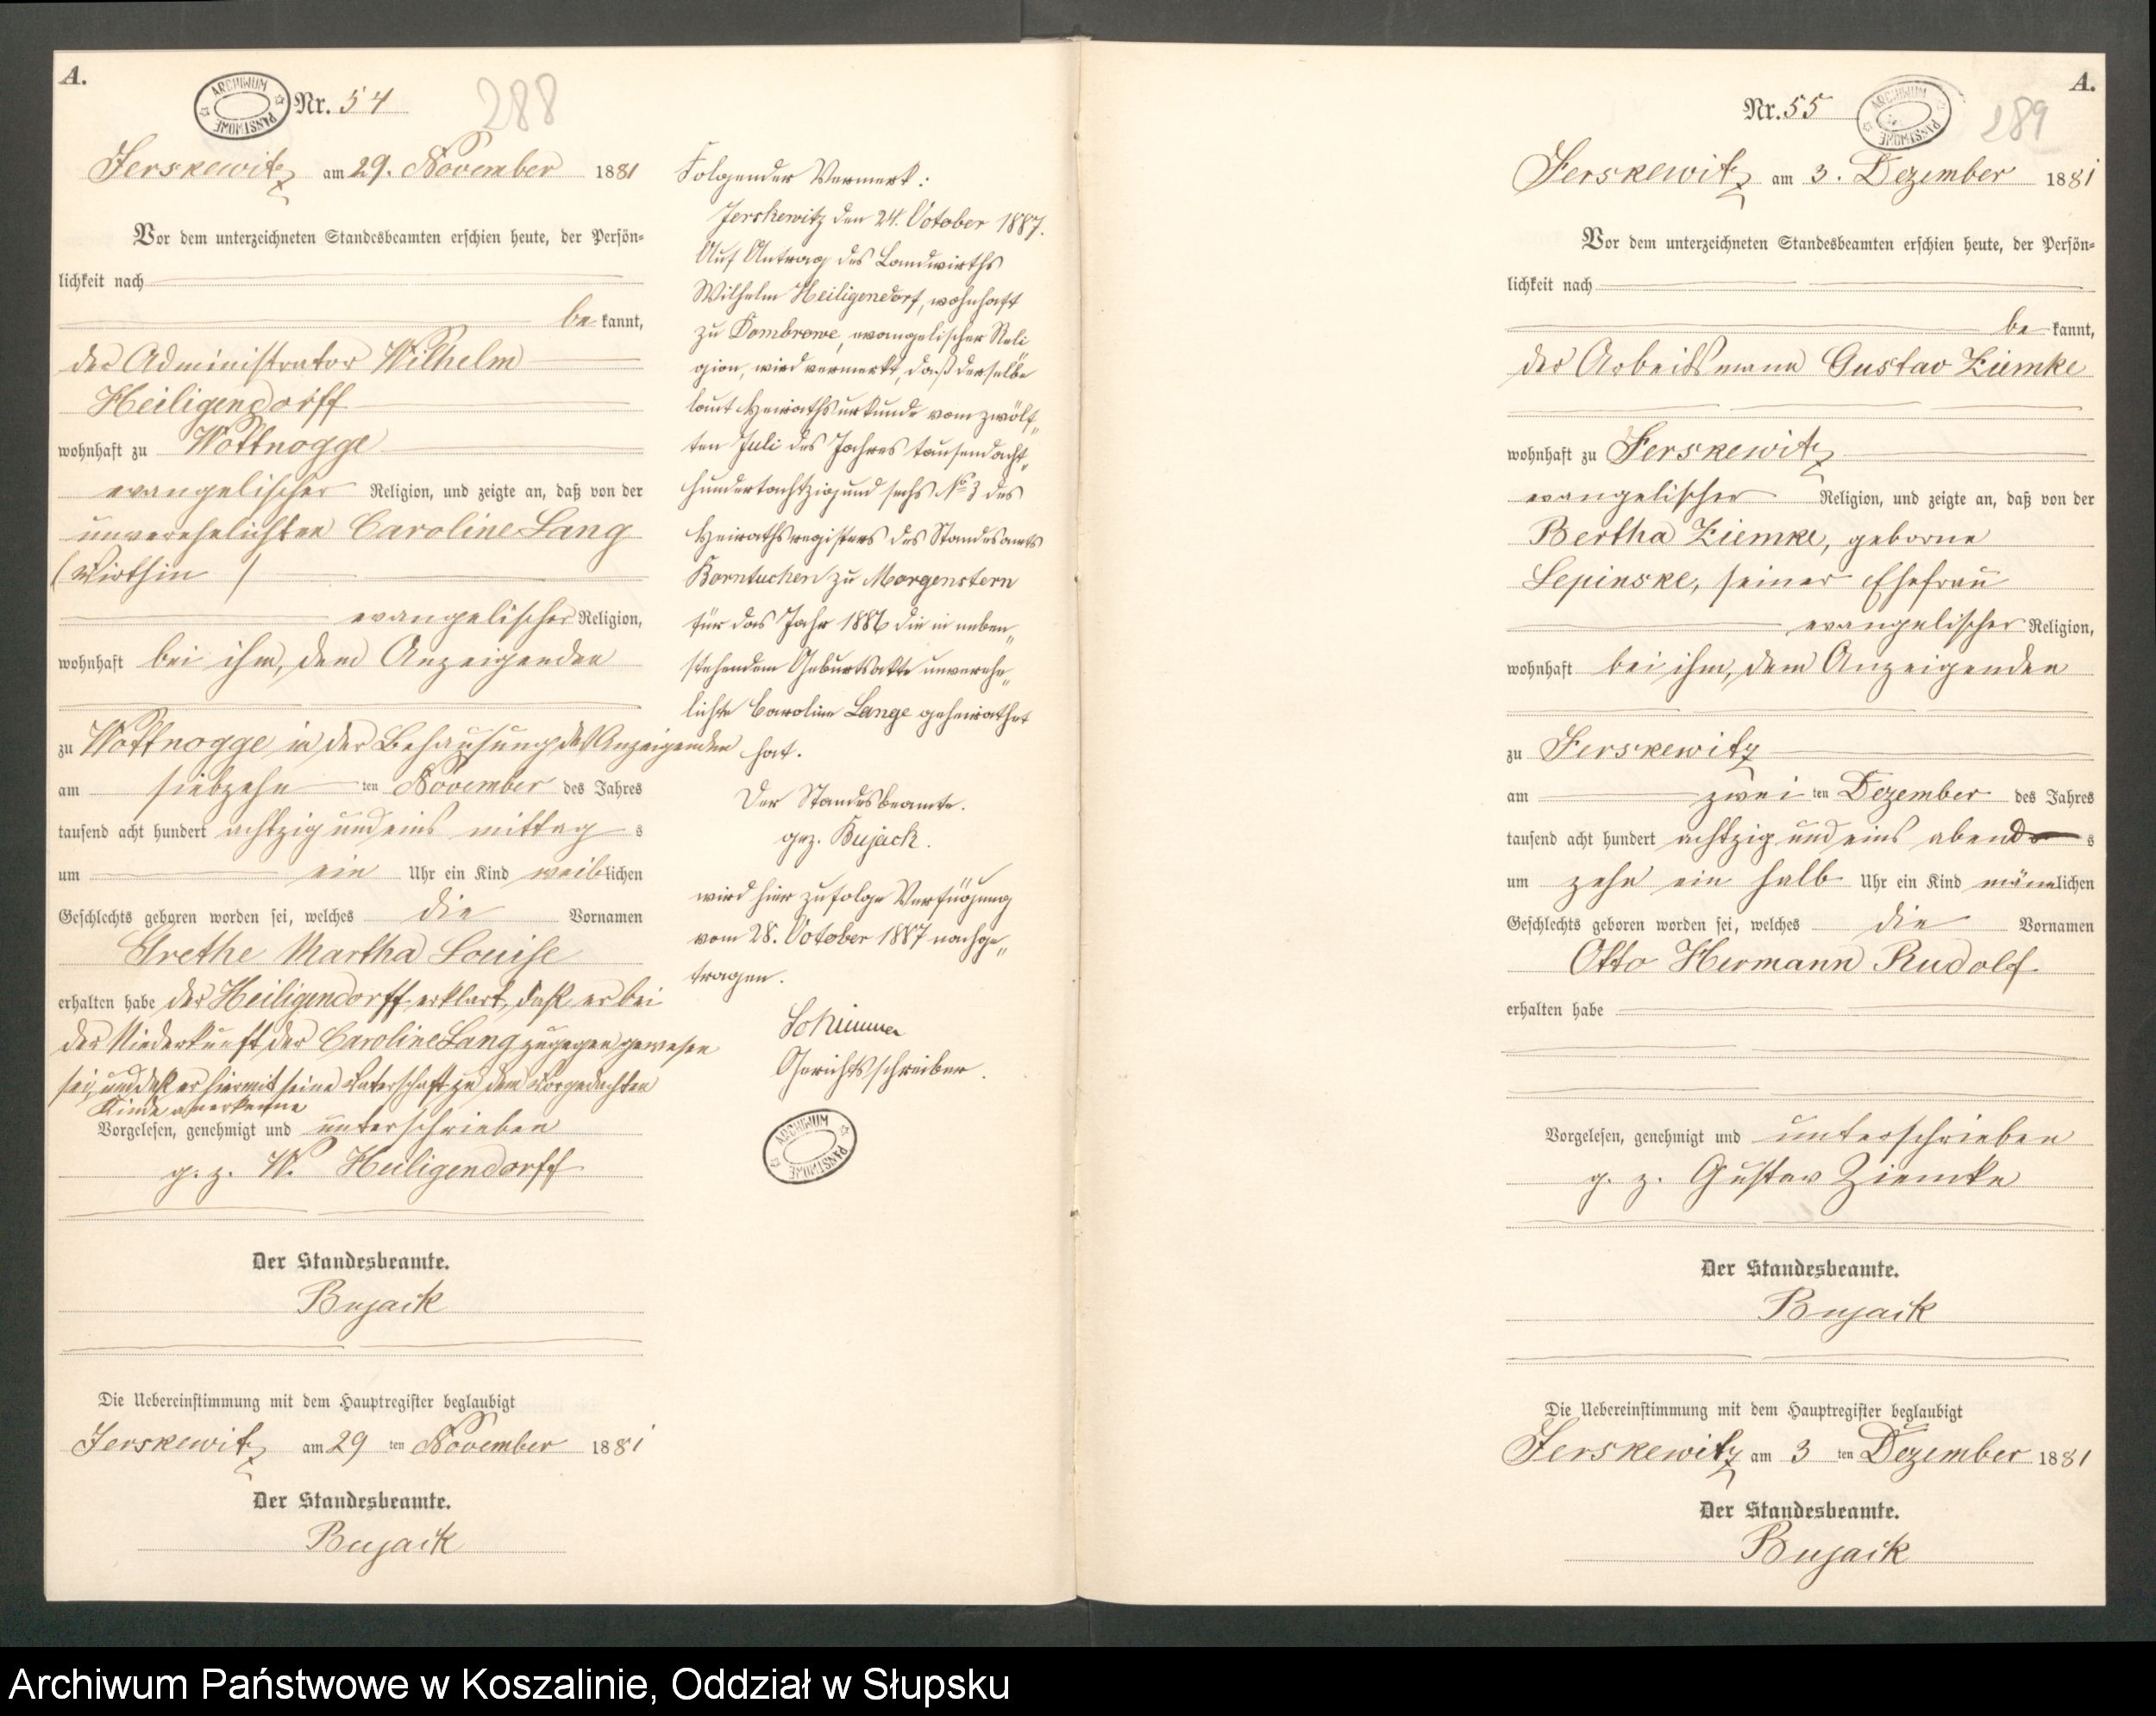 A.
ARCHIWUM PAŃSTWOWE
Nr. 54
288
Jerskewitz am 29. November 1881
Vor dem unterzeichneten Standesbeamten erschien heute, der Persön-
lichkeit nach
be kannt,
der Administrator Wilhelm
Heiligendorff
wohnhaft zu Wottnogge
evangelischer Religion, und zeigte an, daß von der
unverehelichten Caroline Lang
(Wirthin)
evangelischer Religion,
wohnhaft bei ihm, dem Anzeigenden
zu Wottnogge in der Behausung des Anzeigenden
am siebzehn ten November des Jahres
tausend acht hundert achtzig und eins mittag s
um ein Uhr ein Kind weiblichen
Geschlechts geboren worden sei, welches die Vornamen
Grethe Martha Louise
erhalten habe der Heiligendorff erklärt, daß er bei
der Niederkunft der Caroline Lang zugegen gewesen
sei, und daß er hiermit seine Vaterschaft zu dem vorgedachten
Kinde anerkenne
Vorgelesen, genehmigt und unterschrieben
g. z. W. Heiligendorff
Der Standesbeamte.
Bujack
Die Uebereinstimmung mit dem Hauptregister beglaubigt
Jerskewitz am 29 ten November 1881
Der Standesbeamte.
Bujack
Folgender Vermerk:
Jerskewitz den 24. October 1887.
Auf Antrag des Landwirths
Wilhelm Heiligendorf, wohnhaft
zu Dombrowe, evangelischer Reli
gion, wird vermerkt, daß derselbe
laut Heirathsurkunde vom zwölf„
ten Juli des Jahres tausendacht„
hundertachtzigundsechs No 3 des
Heirathsregisters des Standesamts
Borntuchen zu Morgenstern
für das Jahr 1886 die in neben„
stehendem Geburtsakte unverehe„
lichte Caroline Lange geheirathet
hat.
Der Standesbeamte.
gez. Bujack.
wird hier zufolge Verfügung
vom 28. October 1887 nachge„
tragen.
Gerichtsschreiber.
ARCHIWUM PAŃSTWOWE
A.
Nr. 55
ARCHIWUM PAŃSTWOWE
289
Jerskewitz am 3. Dezember 1881
Vor dem unterzeichneten Standesbeamten erschien heute, der Persön-
lichkeit nach
be kannt,
der Arbeitsmann Gustav Ziemke
wohnhaft zu Jerskewitz
evangelischer Religion, und zeigte an, daß von der
Bertha Ziemke, geborne
Lepinske, seiner Ehefrau
evangelischer Religion,
wohnhaft bei ihm, dem Anzeigenden
zu Jerskewitz
am zwei ten Dezember des Jahres
tausend acht hundert achtzig und eins abend s
um zehn ein halb Uhr ein Kind männlichen
Geschlechts geboren worden sei, welches die Vornamen
Otto Hermann Rudolf
erhalten habe
Vorgelesen, genehmigt und unterschrieben
g. z. Gustav Ziemke
Der Standesbeamte.
Bujack
Die Uebereinstimmung mit dem Hauptregister beglaubigt
Jerskewitz am 3 ten Dezember 1881
Der Standesbeamte.
Bujack
Archiwum Państwowe w Koszalinie, Oddział w Słupsku